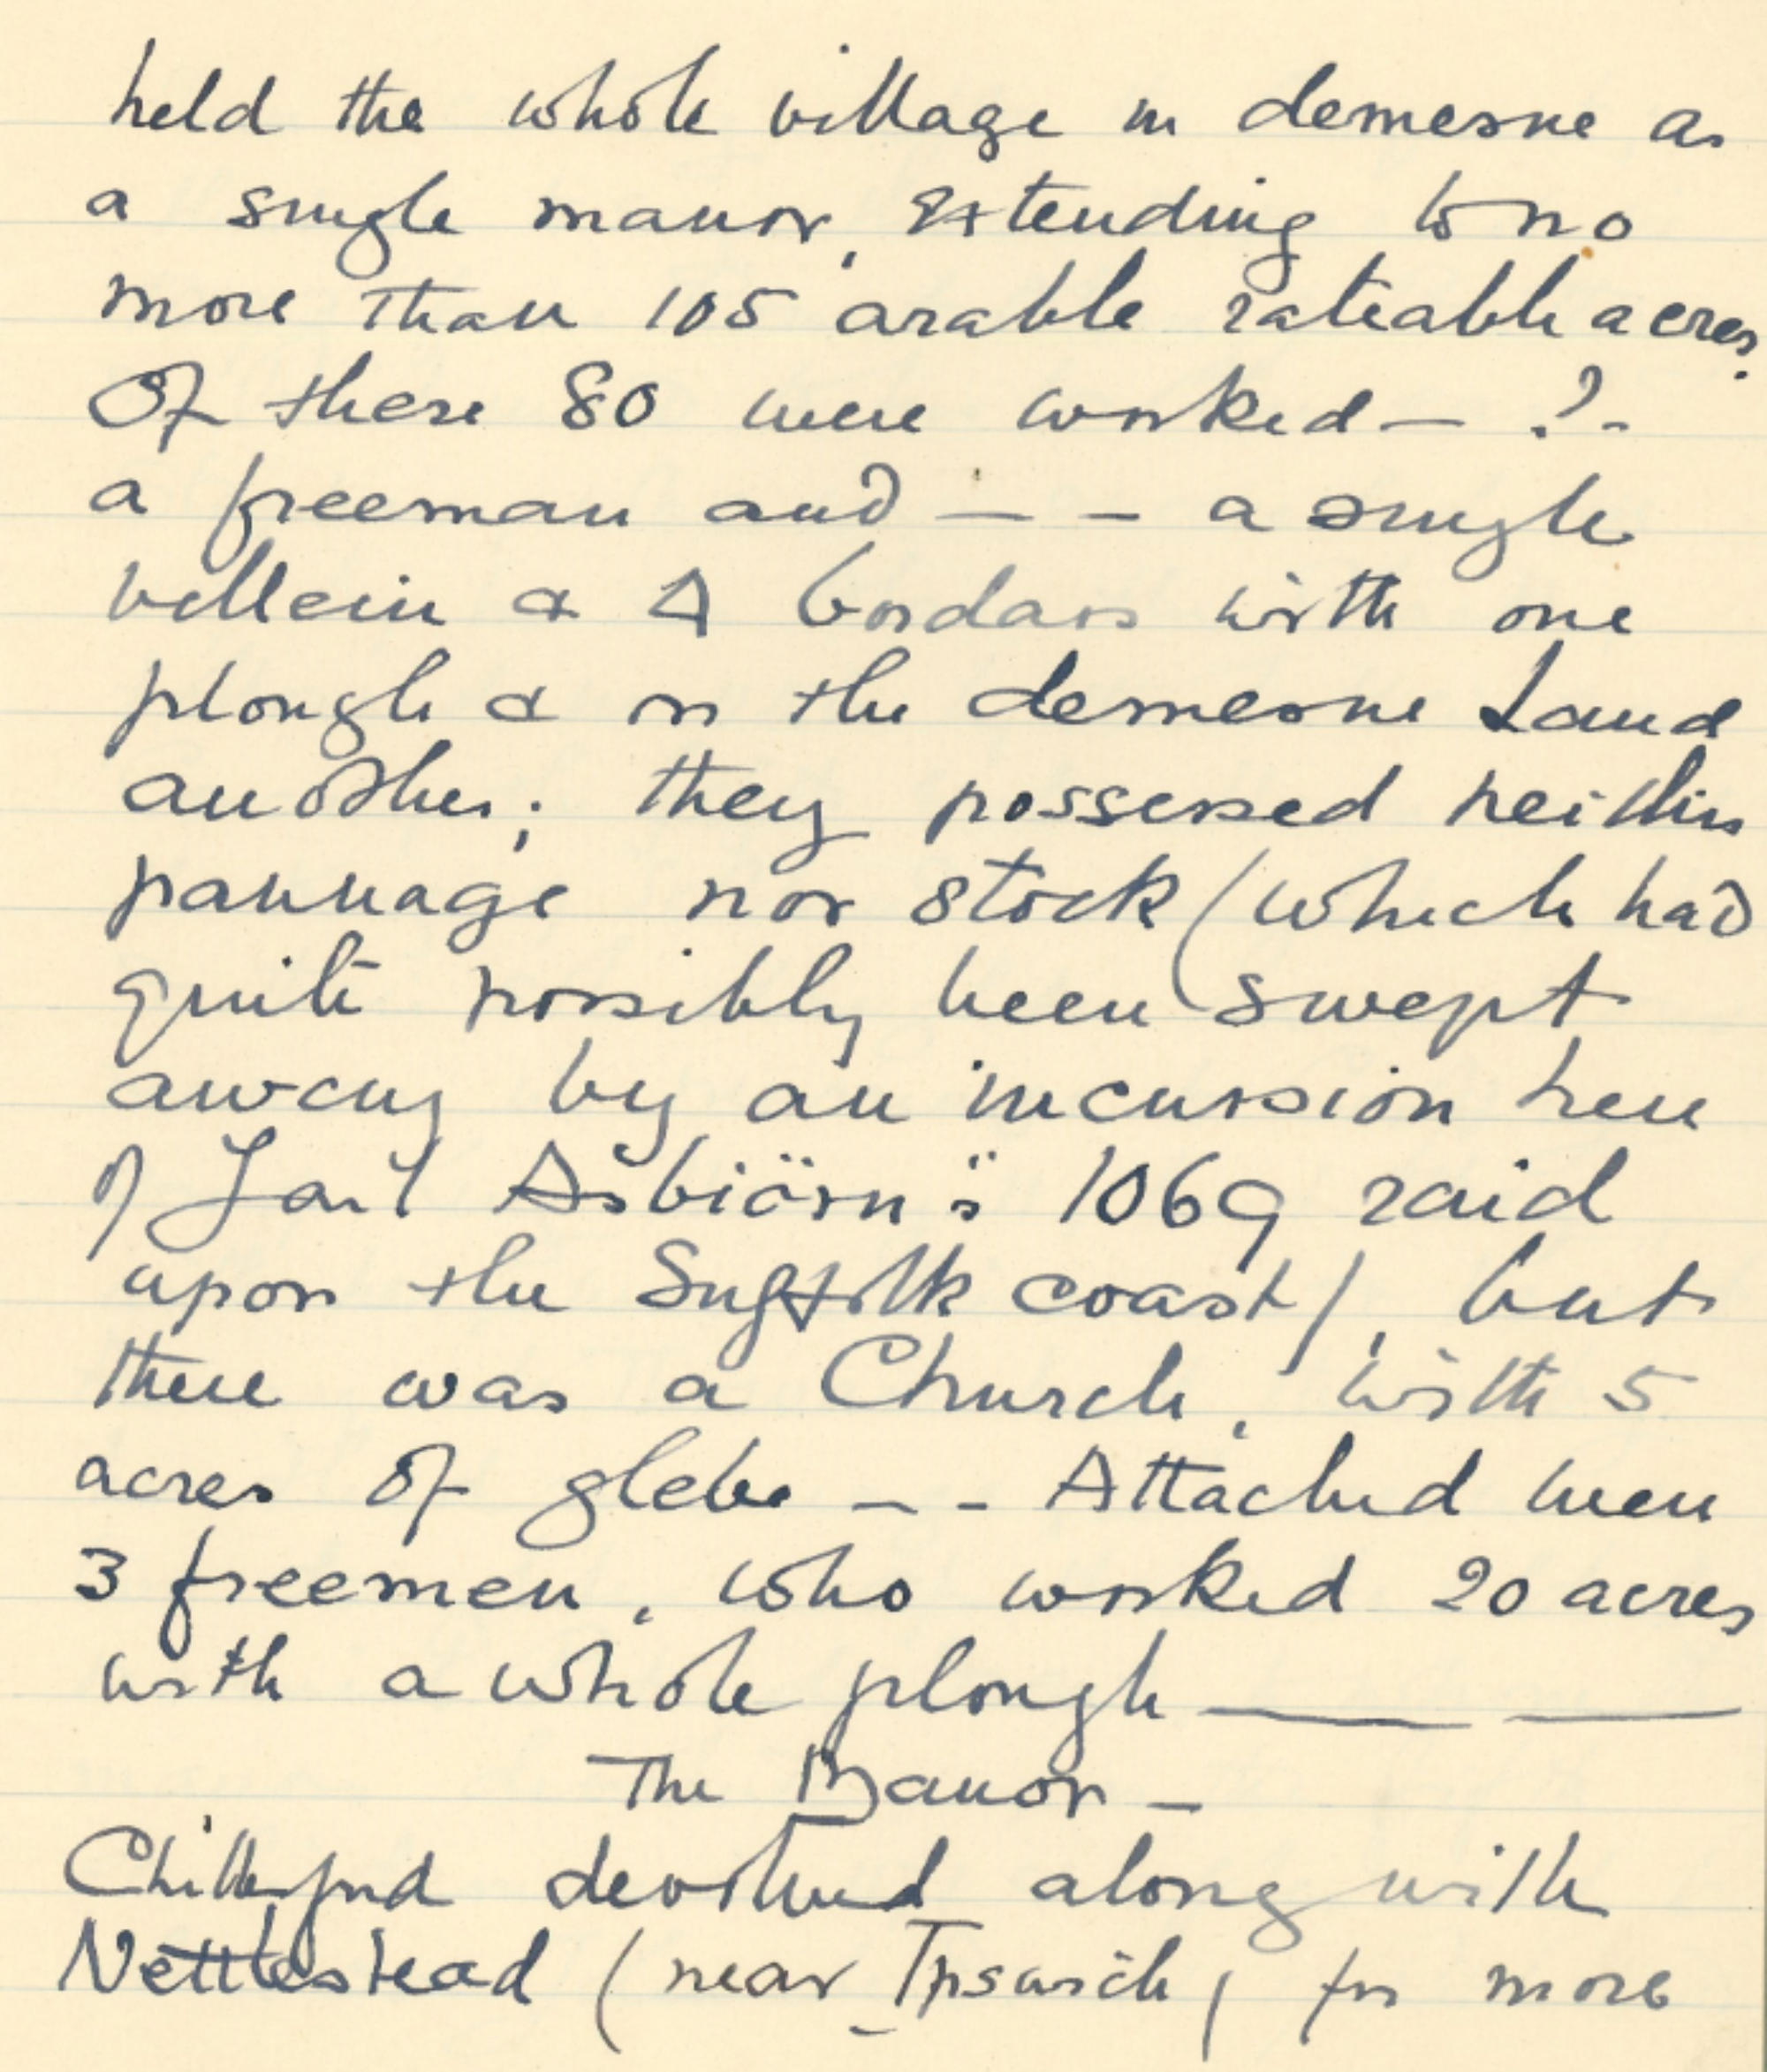 held the whole village in demesne as
a single manor, extending to no
more than 105 arable rateable acres.
Of these 80 were worked — ? -
a freeman and — - a single
villein & 4 bordars with one
plough & on the demesne land
another; they possessed neither
pannage nor stock (which had
quite possibly been swept
away by an incursion here
of Jarl Asbiörn's 1069 raid
upon the Suffolk coast), but
there was a Church, with 5
acres of glebe - - Attached were
3 freemen, who worked 20 acres
with a whole plough — —
The Manor -
Chillesford devolved along with
Nettlestead (near Ipswich) for more